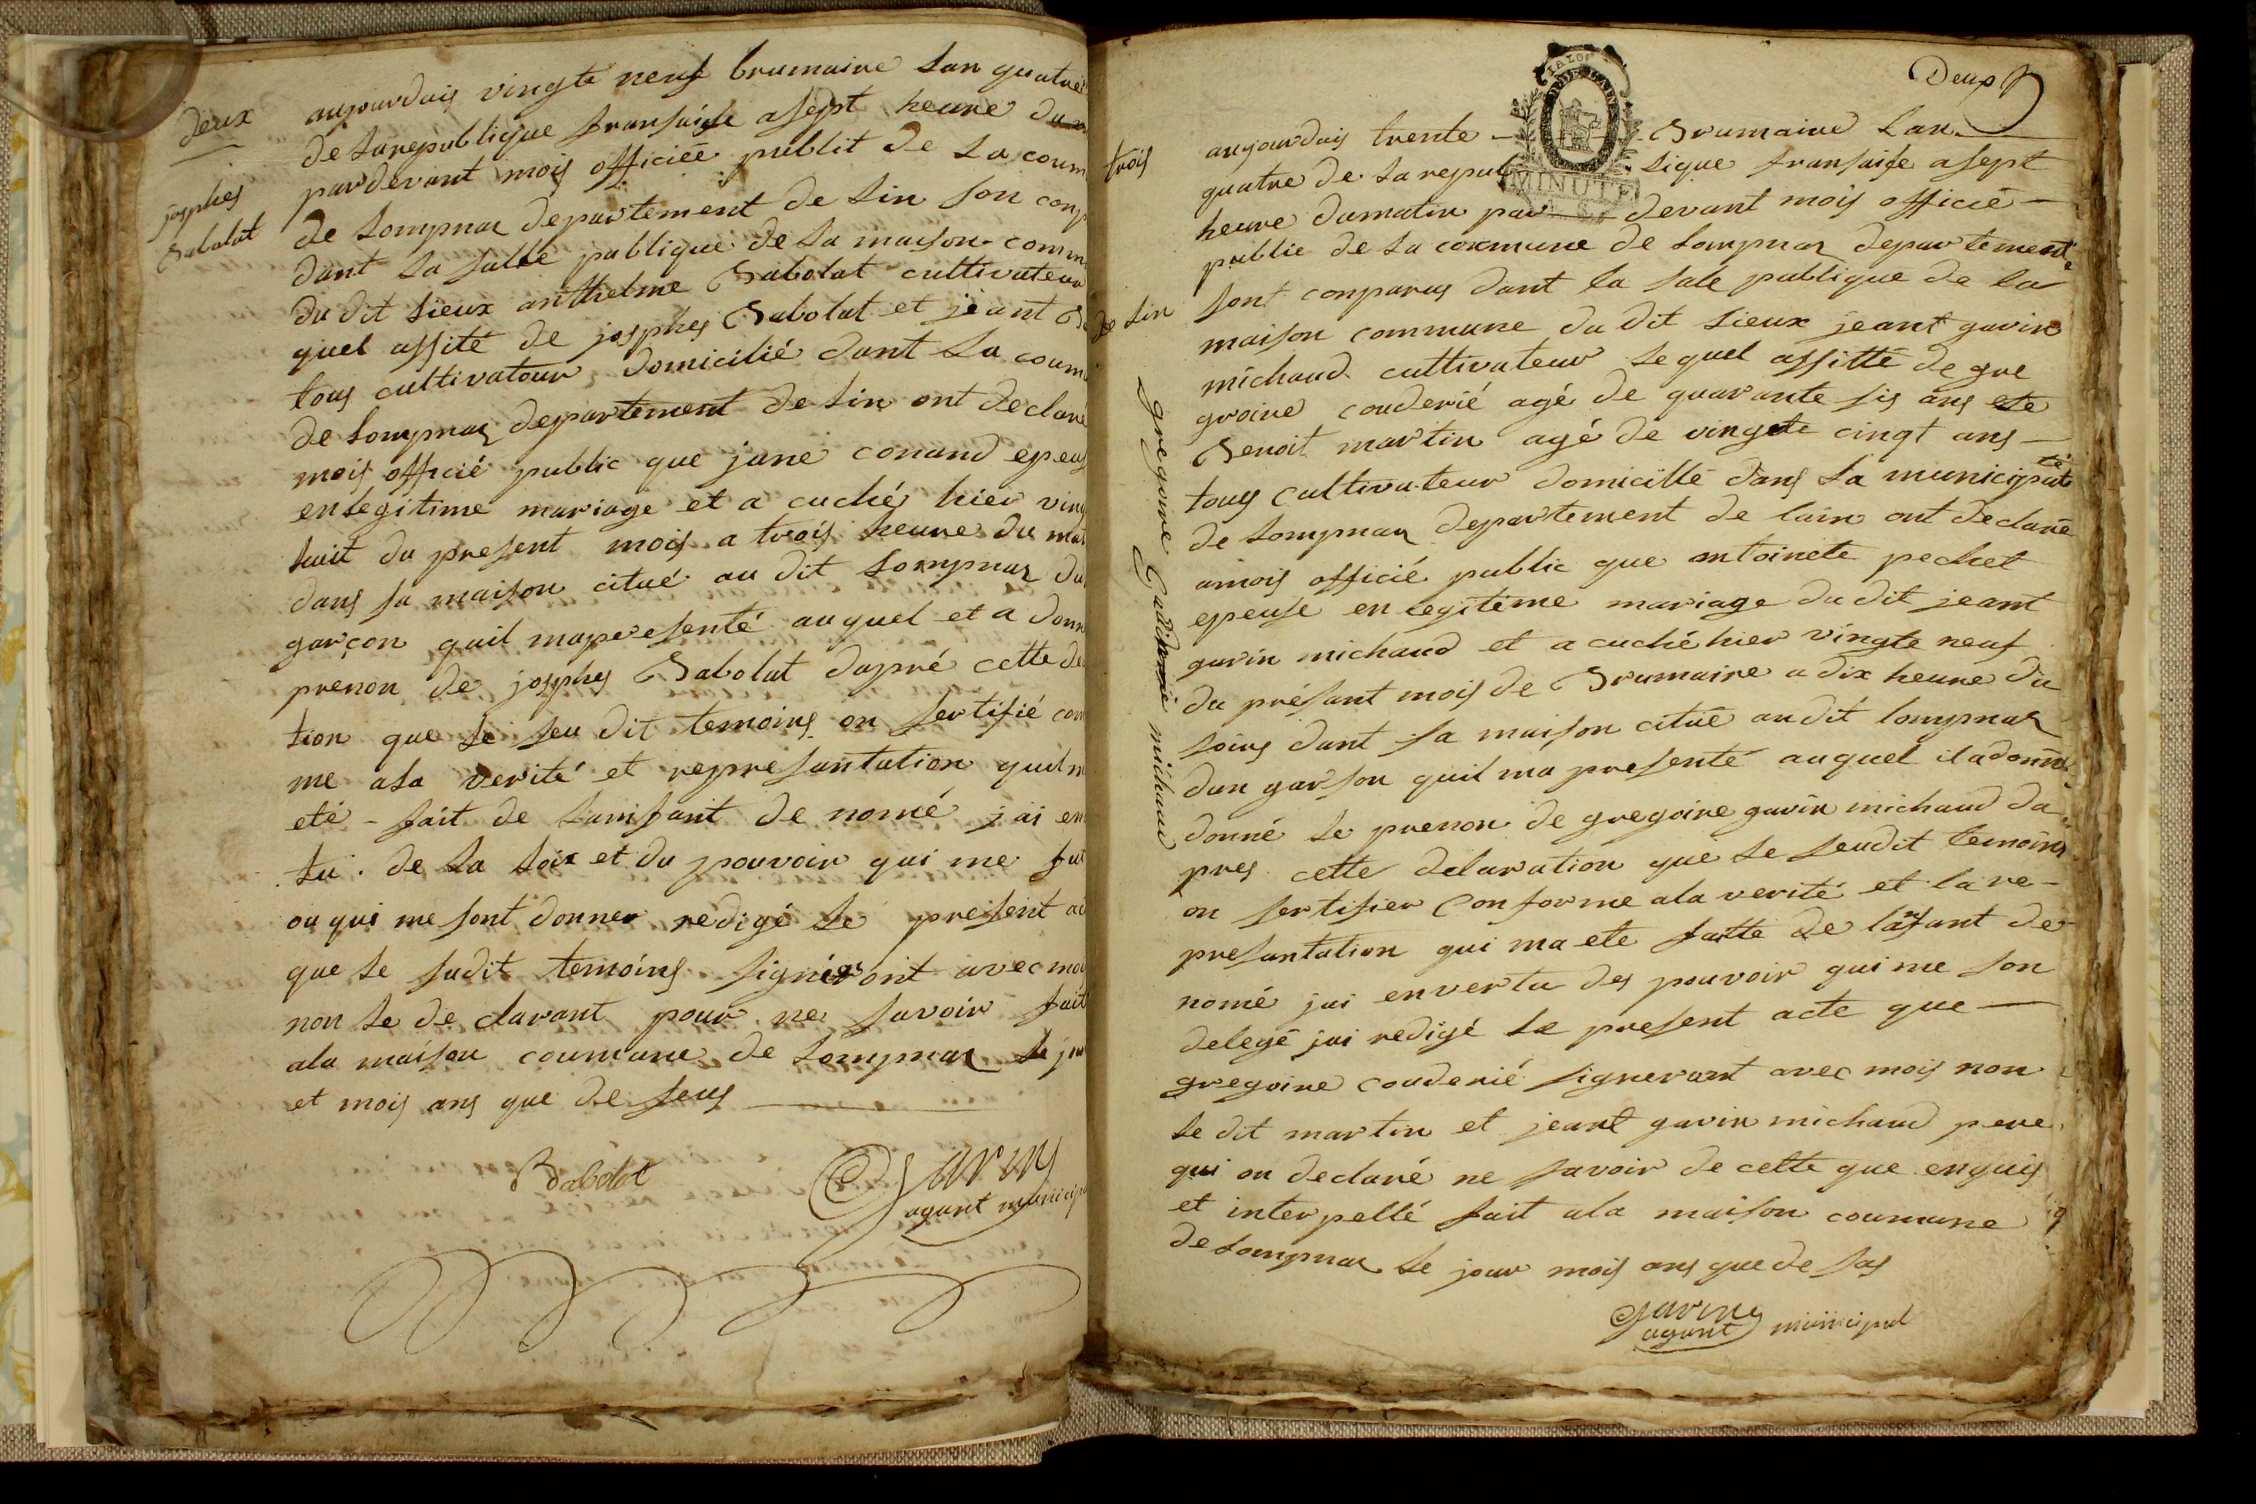 deux
josphes
Babolat
aujourduis vingte neuf brumaire lan quatre
de la republique fransaise asept heure du
pardevant mois officiée publit de la coum
de Lompnaz departement de Lin son conp
dant la salle publique de la maison comm
du dit Lieux anthelme Babolat cultivateur
quel assité de josphes Babolat et jeant Ba
tous cultivatour domicilié dant la coum
de Lompnaz departement de Lin ont declare
mois officié public que jane conand epeus
en legitime mariage et a cuché hier ving
huit du present mois a trois heure du mat
dans sa maison citué au dit Lompnaz du
garçon quil mapresenté auquel et a donn
prenon de josphes Babolat dapré cette de
tion que le seu dit temoins on sertifié con
me ala verité et represantation quil m
eté - fait de Lamfant de nomé jai en
tu de la loix et du pouvoir qui me fut
ou qui me sont donner redigé le preisent ac
que le sudit temoins signieront avec moi
non le de clarant pour ne savoir fait
ala maison coumune de Lompnaz le jou
et mois ans que de seus
Babolat
Gavin
agant municip
Deux
trois
aujourduis trente - Brumaire Lan
quatre de la repub lique fransaise asept
heure dumatin par devant mois officié -
public de la commune de Lompnaz departement
de Lin sont conparus dant la sale publique de la
maison commune du dit Lieux jeant gavin
michaud cultivateur lequel assitté de gre
groire couderié agé de quarante sis ans ete
Benoit martin agé de vingte cinqt ans -
tous cultivateur domicillé dans la municipalité
de Lompnaz departement de lain ont declaré
amois officié public que antoinete pechet
epeuse en legitime mariage du dit jeant
gavin michaud et a cuché hier vingte neuf
du présant mois de Brumaire a dix heure du
soirs dant sa maison citué audit lompnaz
dun garson quil ma presenté auquel il adonné
donné le prenon de gregoire gavin michaud da
pres cette delaration que le seudit temoins
on sertifier Conforme ala verité et la re-
presantation qui ma ete faitte de lanfant de
nomé jai envertu des pouvoir qui me son
delegé jai redigé le present acte que -
gregoire couderié signerant avec mois non
le dit martin et jeant gavin michaud pere
qui on declaré ne savoir de cette que enquis
et interpellé fait ala maison coumune
de Lompnaz le jour mois ans que de sas
Gavin
agant municipal
gregoire michaud
MINUTE